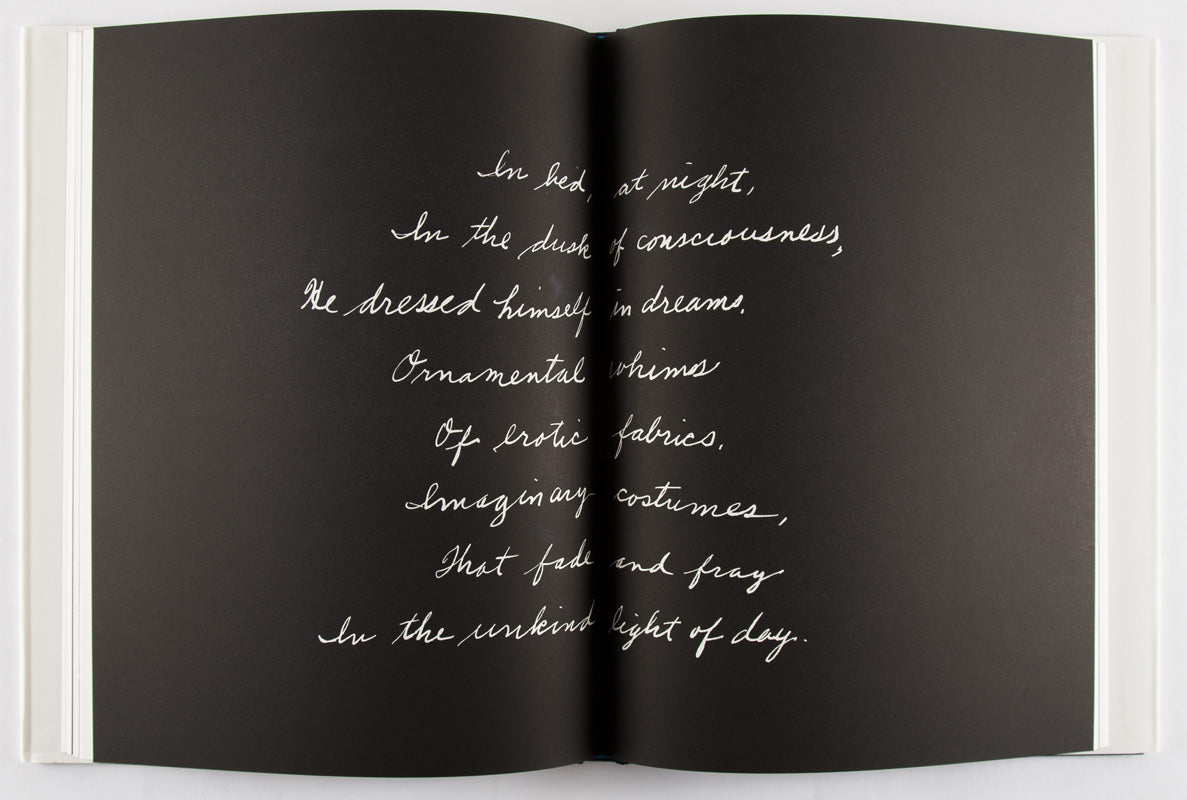 In bed, at night,
In the dusk of consciousness,
He dressed himself in dreams.
Ornamental whims
Of erotic fabrics.
Imaginary costumes,
That fade and fray
In the unkind light of day.